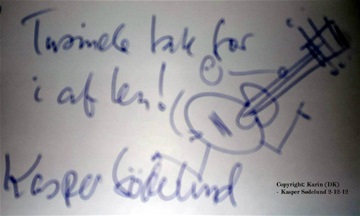 tak for
i aften!
Kasper Södelund
Copyright: Karin (DK)
- Kasper Sødelund 3-12 12